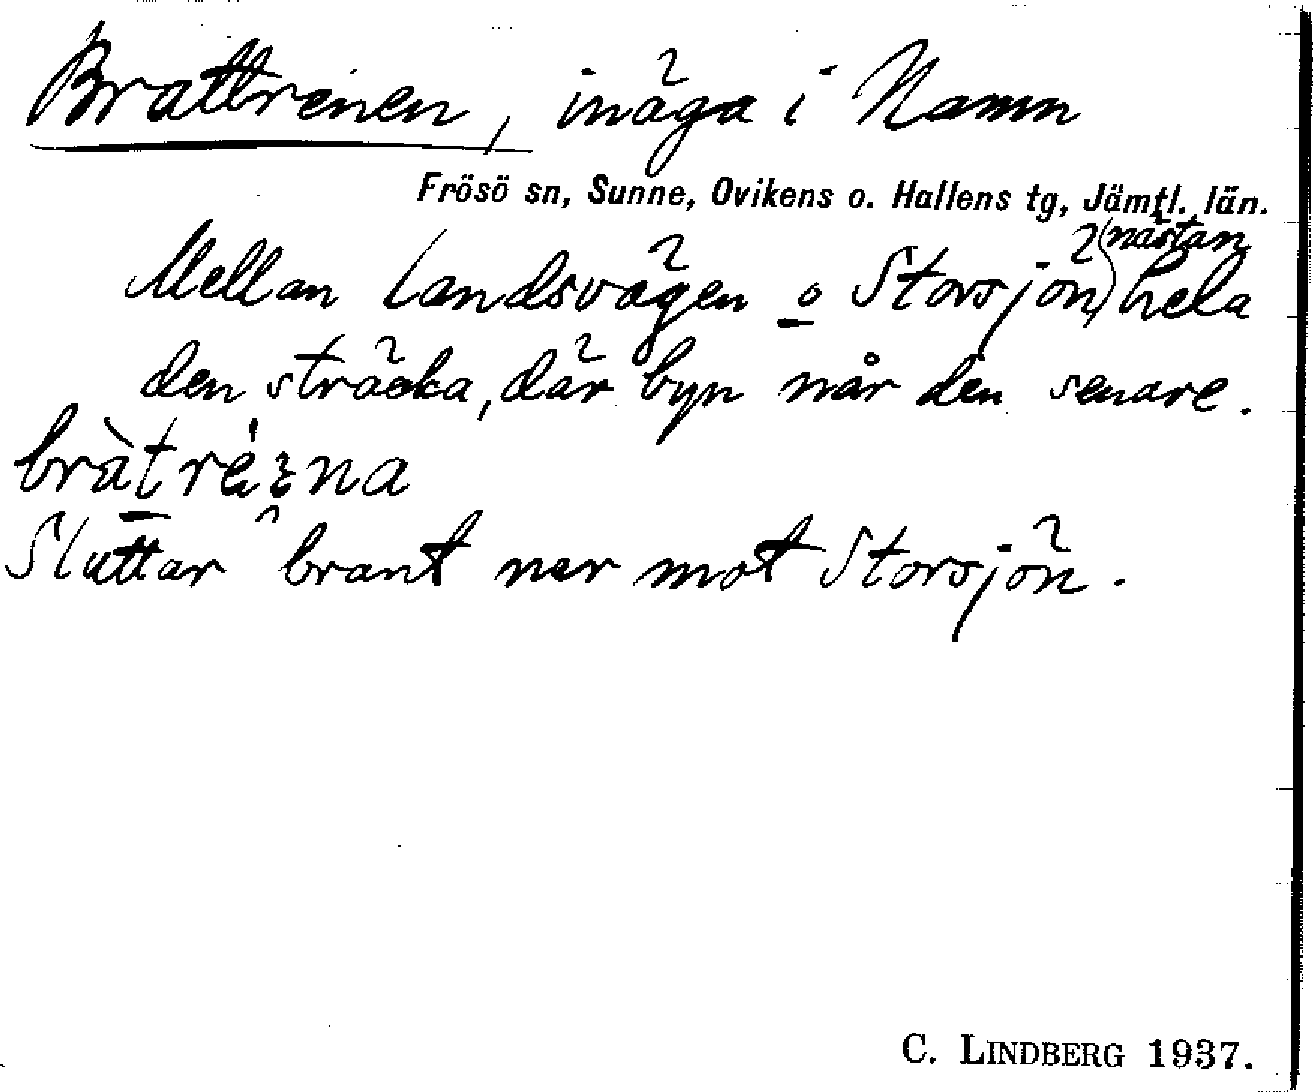 Brattrenen, inäga i Namn
Frösö sn, Sunne, Ovikens o. Hallens tg, Jämtl. län.
Mellan landsvägen o Storsjön (nästan) hela
den sträcka, där byn når den senare.
bràtre̍ına
Sluttar brant ner mot Storsjön.
C. LINDBERG 1937.